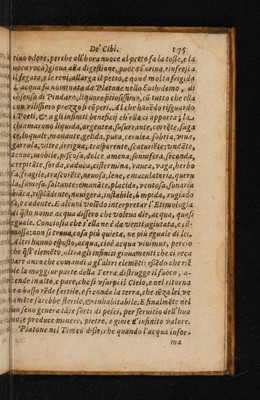 De' Cibi. 175
tiuo odore, perche all'hora nuoce al petto fa la tosse, e la
uoce roca) gioua alla digestione, puoca l'orina, rinfresca
il fegato, e le reni, allarga il petto, e quand' molta frigida
L'acqua fu nominata da Platone nello Euthidemo, di
Pindaro, liquore
con vilissimo prezzo si comperi. Al che hauēdo risguardo
i Poeti, & a gli infiniti beneficij ch'ella ci apporta; la
chiamarono liquida, argentea, susurrante, corrēte, fuga
ce, loquale, moriante, gelida, pura, ceruлea, sobria, viua,
garrula, vitrea, irrigua, trasparente, scaturiēte, vndāte,
tenue, mobile, piscosa, dolce, amena, sonnifera, feconda,
crepitāte, sorda, caduca, cisternina, vauca, vaga, herbo
sa, fragile, trascorrēte, neuosa, lene, emaculatoria, queru
la, famosa, saltante, emanāte, placida, ventosa, sonaria
bianca, risplēdente, nauigera, instabile, limpida, rugiado
sa, e cadente. E alcuni volēdo interpretar l'Etimologia
di questo nome acqua dissero che voleua dir, acqua, quasi
eguale. Conciosia che s'ella nō è da venti agitata, e cō-
mossa; non si troua cosa più quieta, ne più eguale di lei.
Altri hanno esposto, acqua, cioè acqua viuimus, percio
che quest'elemēto, oltra gli infiniti giouamenti che ci reca
pare anco che comandi a gl'altri elemēti: essēdo che riē
pie la maggior parte della Terra, distrugge il fuoco, a-
scende in alto, e pare, che si vsurpi il Cielo, e nel ritorna
re a basso rēde fertile, e feconda la terra, che senza lei ve
ramēte sarebbe sterile, e inhabitabile. E finalmēte nel
suo seno genera tāte sorti di pesci, per seruitio dell'huo
mo; e produce minere, pietre, e gioie d'infinito valore.
Platone nel Timeo disse, che quando l'acqua infor
ma